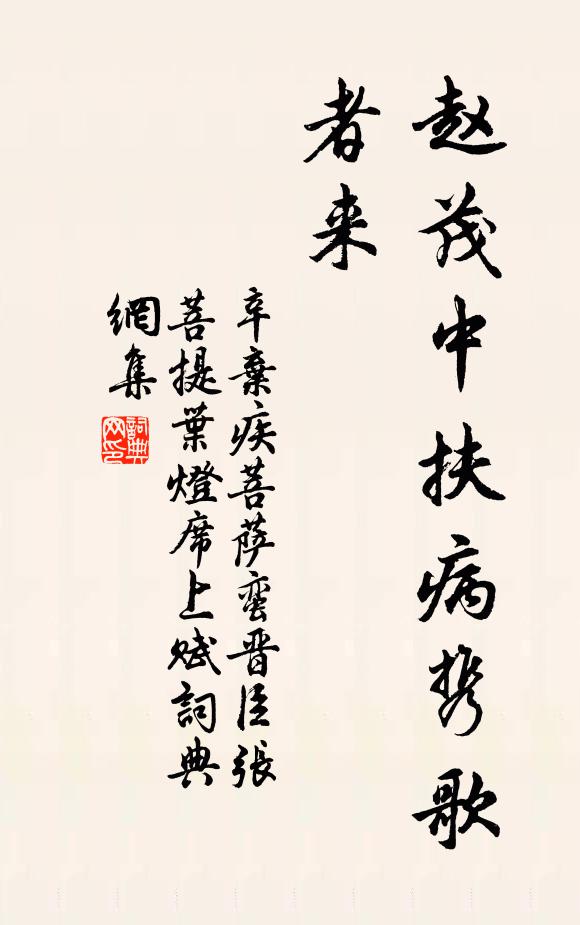 赵茂中扶病携歌
者来
辛棄疾菩萨蛮晋臣張
菩提葉燈席上赋詞典
網集
詞典
网印